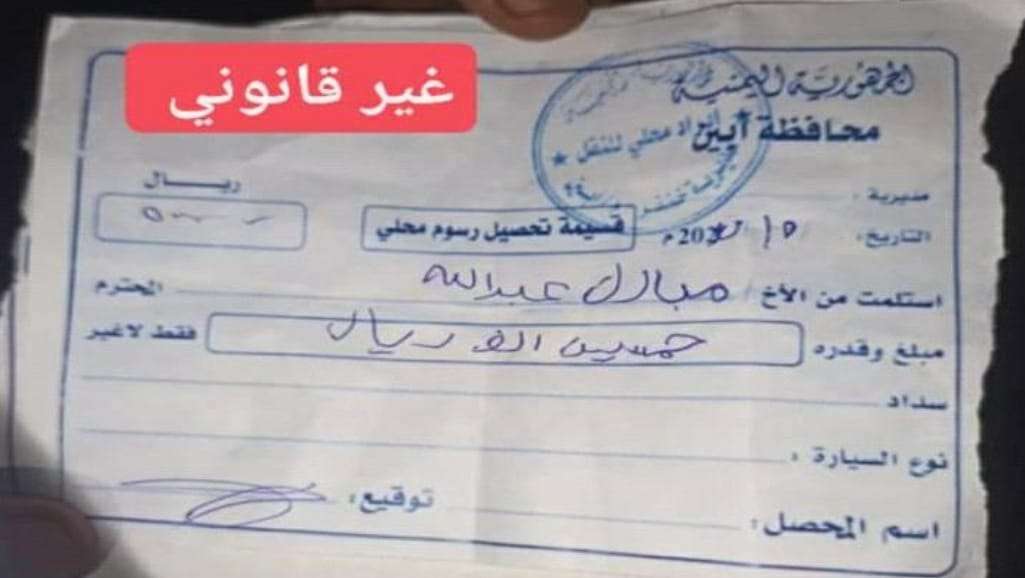 غير قانوني
الجمهورية اليمنية
محافظة أبين
مديرية :
ريـــال
التاريخ : 15 / 20 م
قسيمة تحصيل رسوم محلي
5
استلمت من الأخ / مبارك عبدالله المحترم
مبلغ وقدره خمسين الف ريال فقط لاغير
سداد
نوع السيارة :
اسم المحصل : توقيع :
محلي للنقل